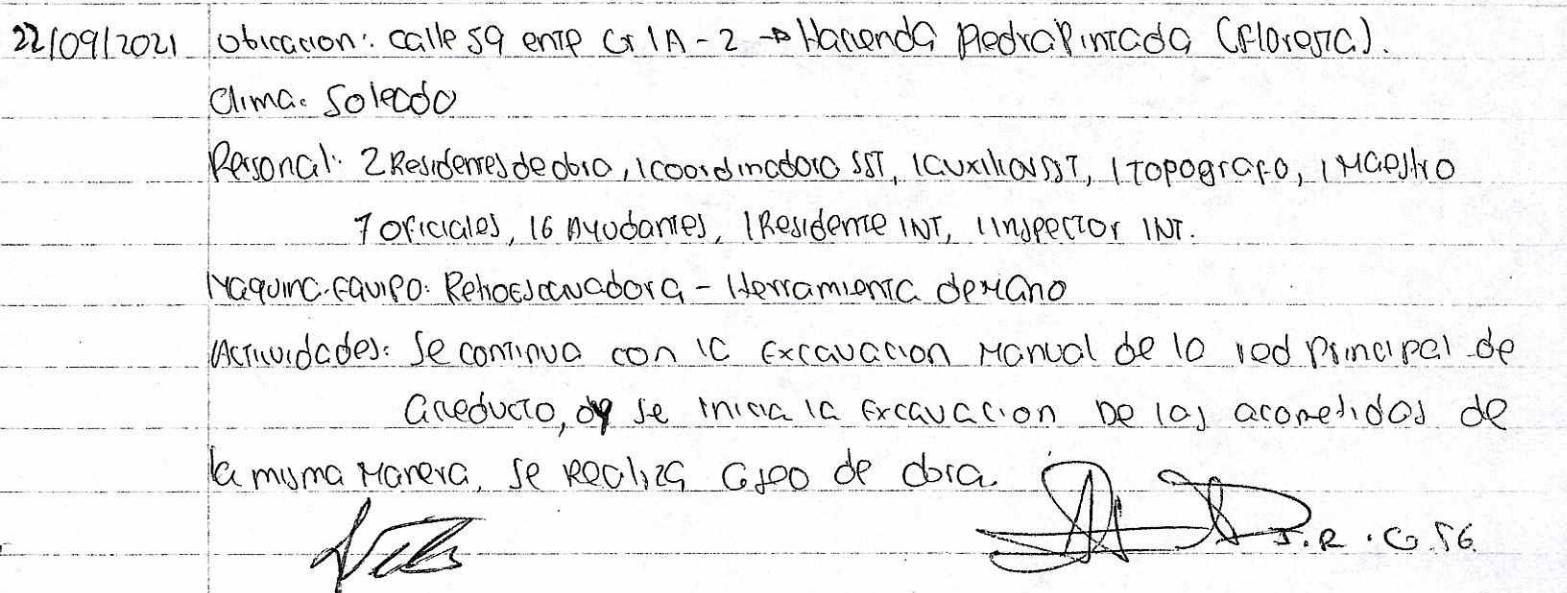 22/09/2021 Ubicacion: calle 59 ente Cr 1A - 2 → Hacienda PiedraPintada (Floresta).
Clima: Soleado
Personal: 2 Residentes de obra, 1 coordinadora SST, 1 Auxiliar SST, 1 Topografo, 1 Maestro
7 oficiales, 16 Ayudantes, 1 Residente INT, 1 Inspector INT.
Maquina-Equipo: Retroexcavadora - Herramienta de Mano
Actividades: Se continua con la Excavacion Manual de la red Principal de
acueducto, se inicia la Excavacion De las acometidas de
la misma Manera, se Realiza Aseo de obra.
J.R.G.56